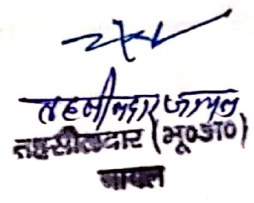 तहसीलदार जायल
तहसीलदार (भू०अ०)
जायल